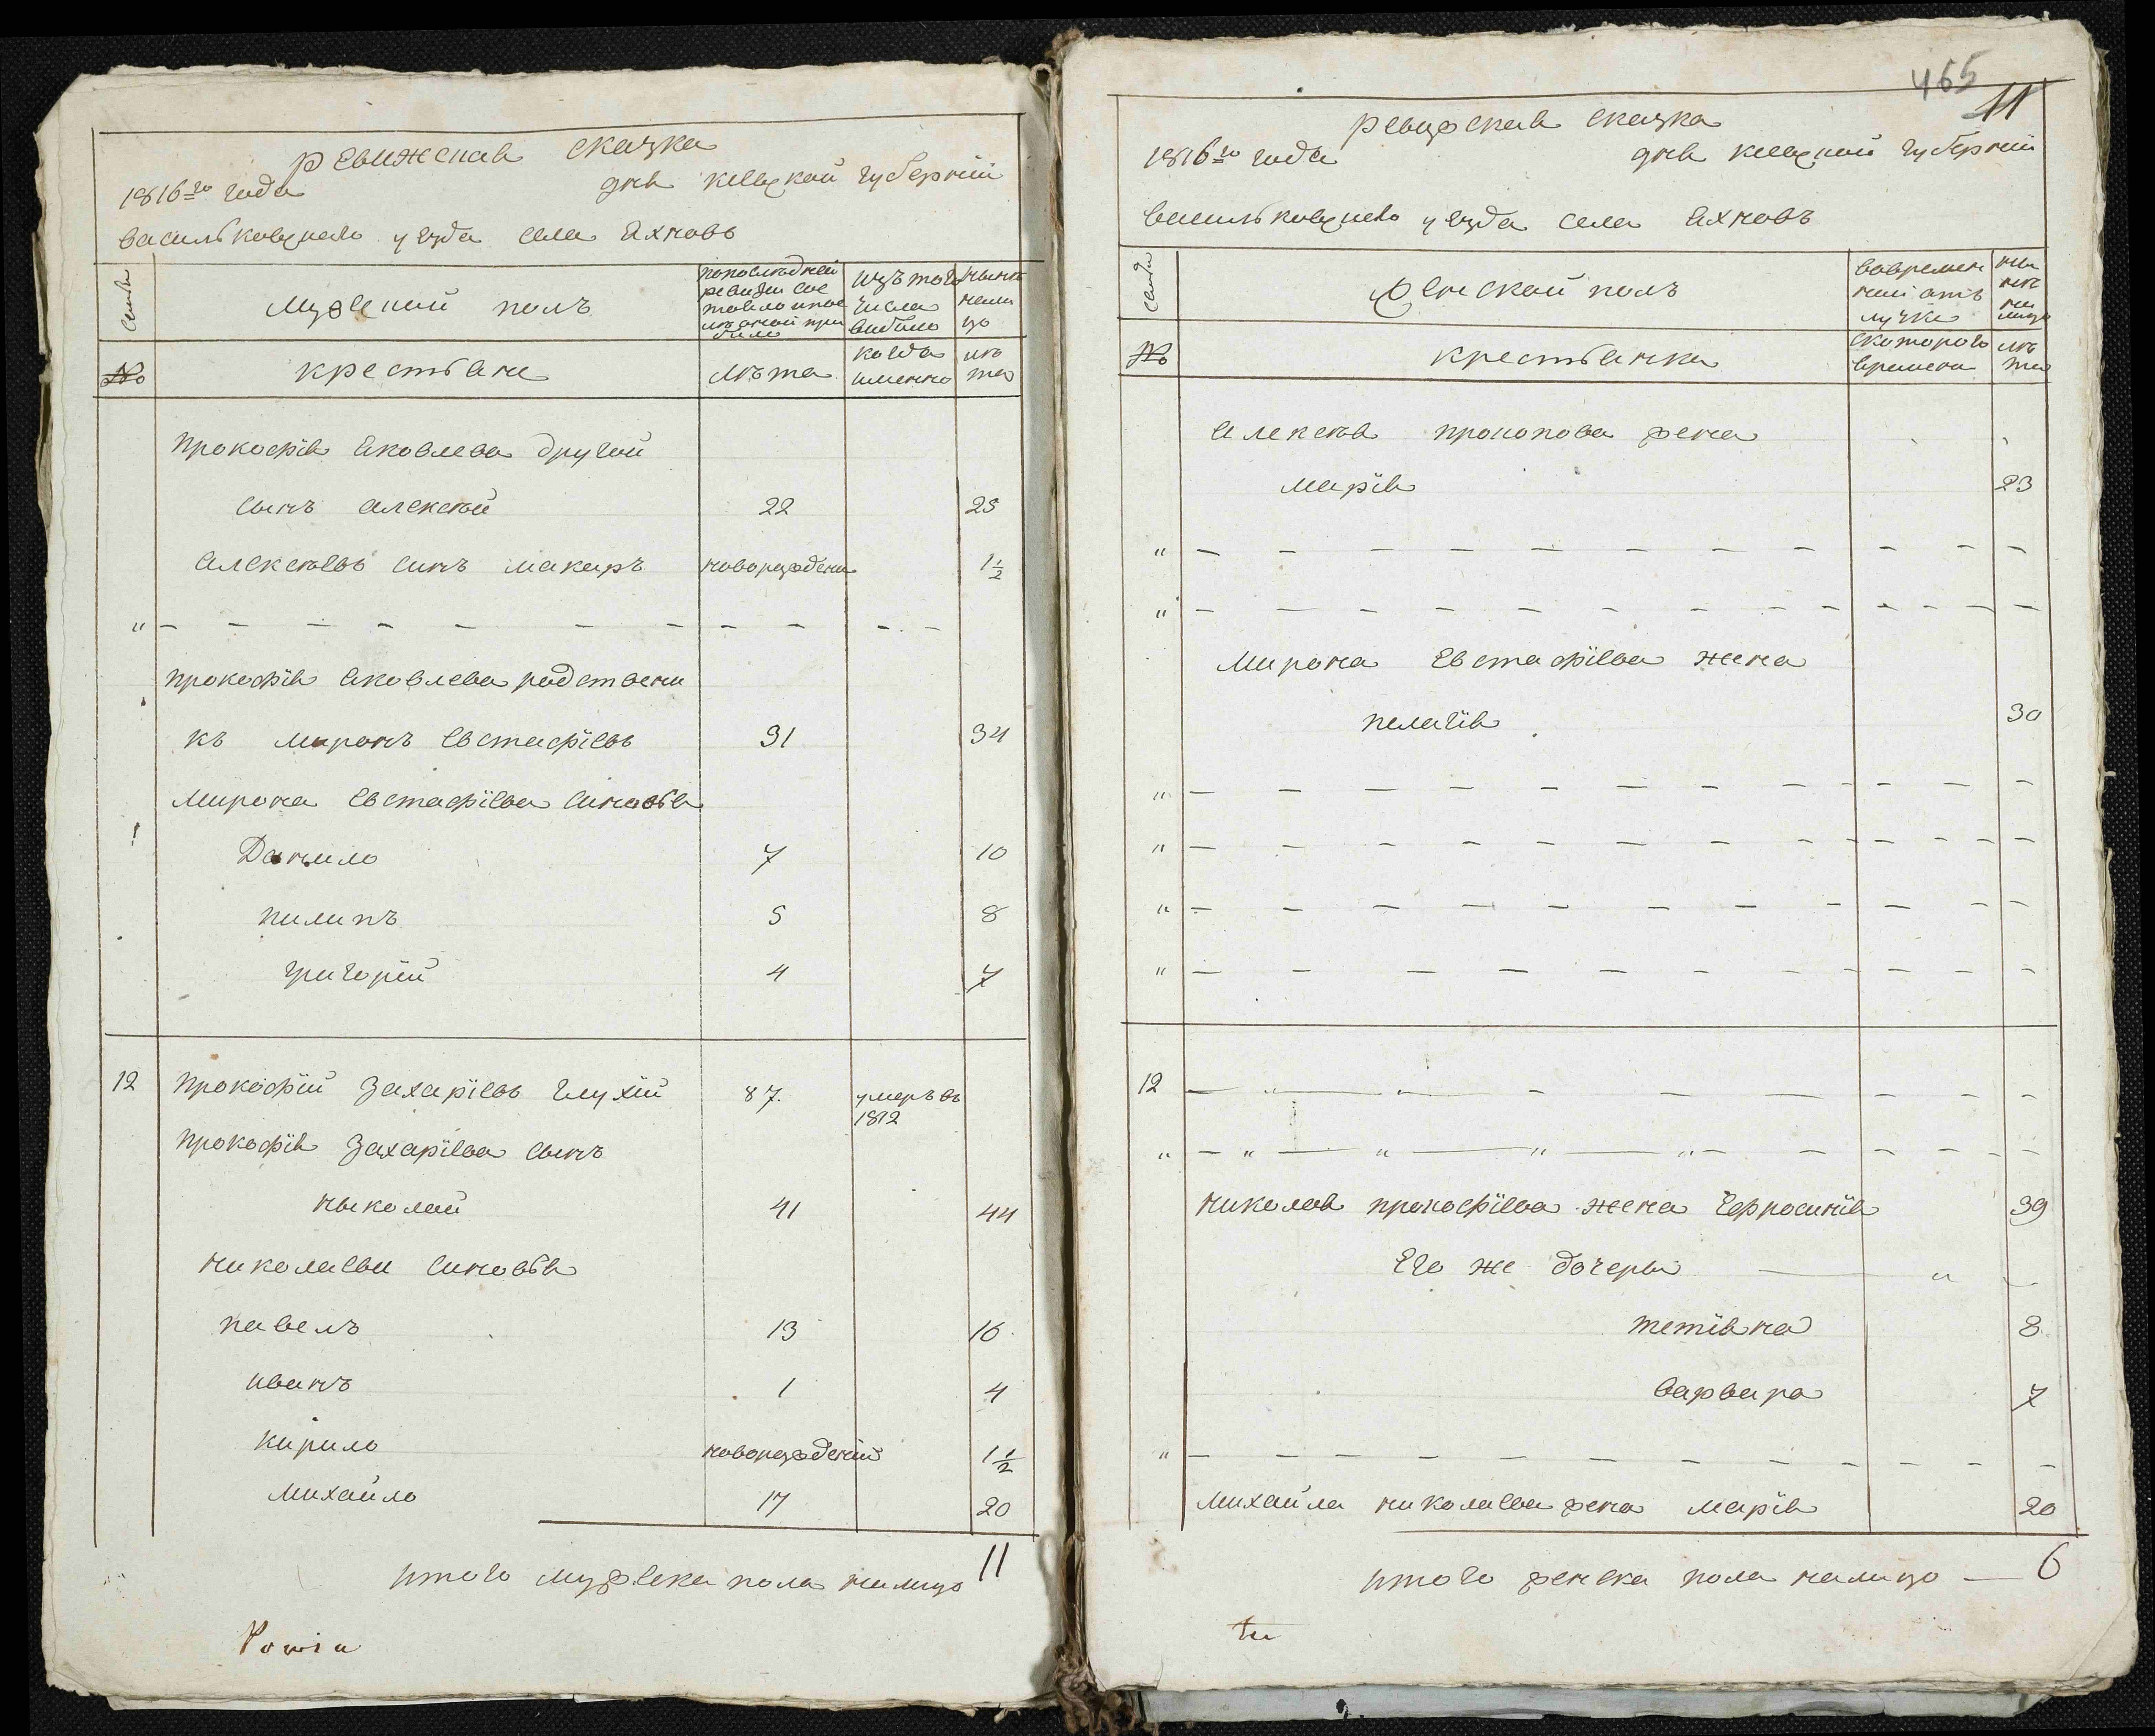 ревижская сказка
1816го года
дня киевской губернии
васильковского уезда села Яхновъ
семьи
Мужеский полъ
по последней ревизии состояло и после оной прибыло
изъ того числа выбыло
ныне налицо
№
крестьяне
лѣта
когда именно
лѣта
прокофія яковлева другой
сынъ алексѣй 22 25
алексѣевъ синъ макаръ новорожденн 1 1/2
" — — — — — — — — — — —
прокофія яковлева родственни
къ миронъ Евстафіевъ 31 34
мирона Евстафіева синовья
Данило 7 10
пилипъ 5 8
григорій 4 7
12 прокофій захаріевъ глухій 87. умеръ въ
1812
прокофія захаріева сынъ
николай 41 44
николаеви синовья
павелъ 13 16
иванъ 1 4
кирило новорожденій 1 1/2
михайло 17 20
итого мужеска пола налицо 11
465
11
ревизская сказка
1816го года
дня киевской губерний
васильковского уезда села Яхновъ
семьи
Женской полъ
во временной отлучке
ныне налицо
№
крестьянка
с которого времени
лѣта
алексѣя прокопова жена
марія 23
" — — — — — — — — — — —
" — — — — — — — — — — —
мирона Евстафіева жена
пелагія 30
" — — — — — — — — — — —
" — — — — — — — — — — —
" — — — — — — — — — — —
" — — — — — — — — — — —
12 — " — " — — — — — — —
" — " — " — " — " — — — — — —
николая прокофіева жена Ефросинія 39
Его же дочеры — " —
тетіяна 8
варвара 7
" — — — — — — — — — — —
михайла николаева жена марія 20
итого женска пола налицо — 6